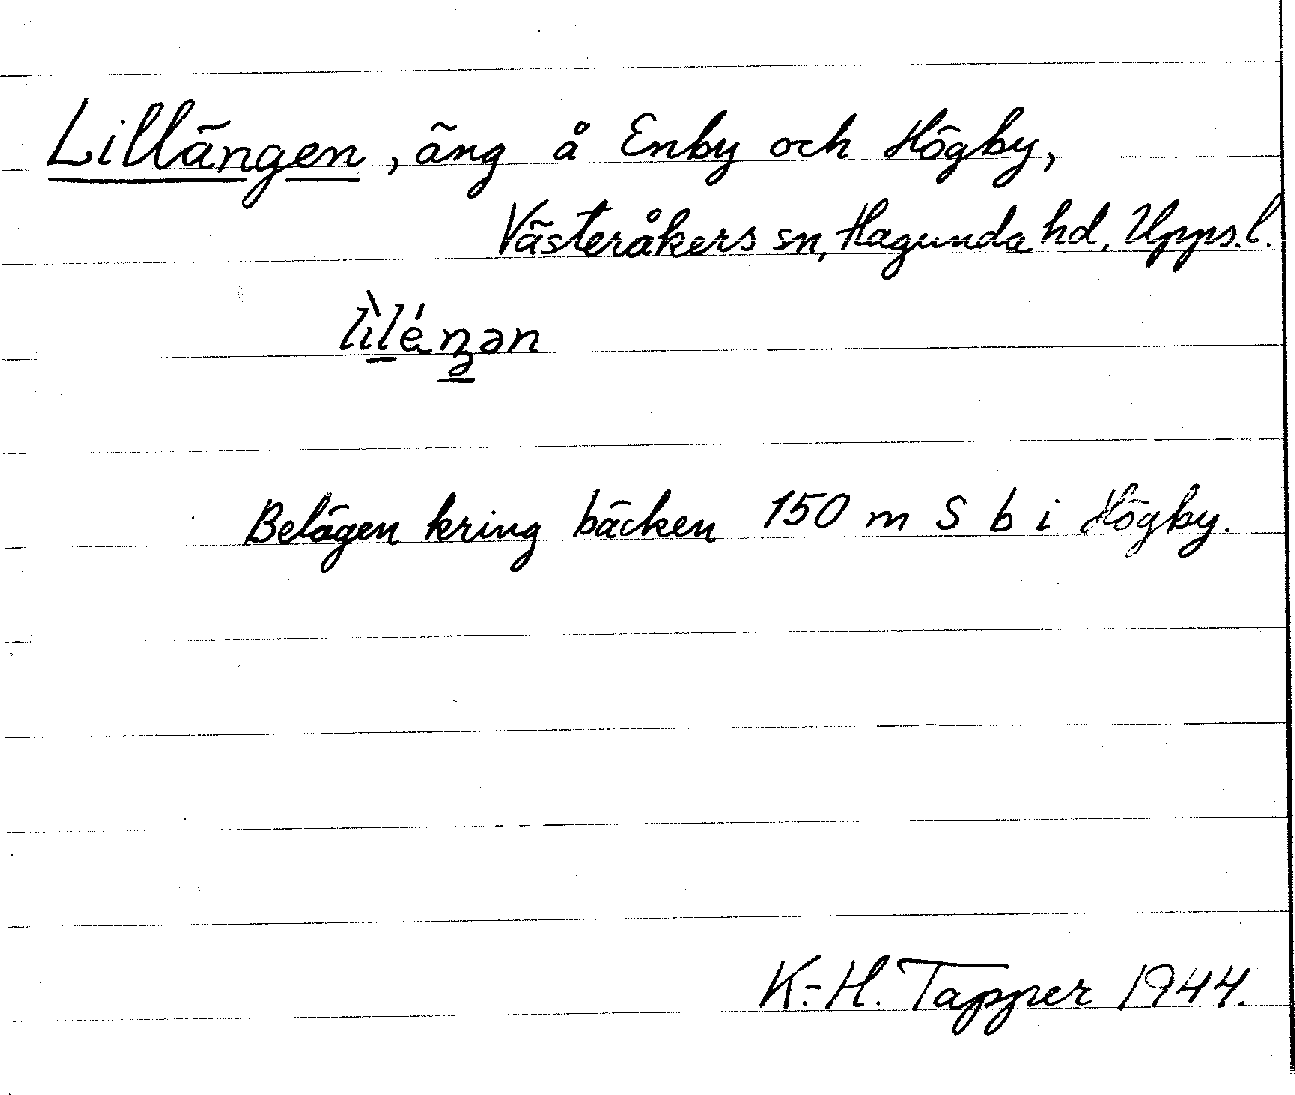 Lillängen, äng å Enby och Högby,
Västeråkers sn, Hagunda hd, Upps.l.
lìléŋən
Belägen kring bäcken 150 m S b i Högby.
K.-H. Tapper 1944.